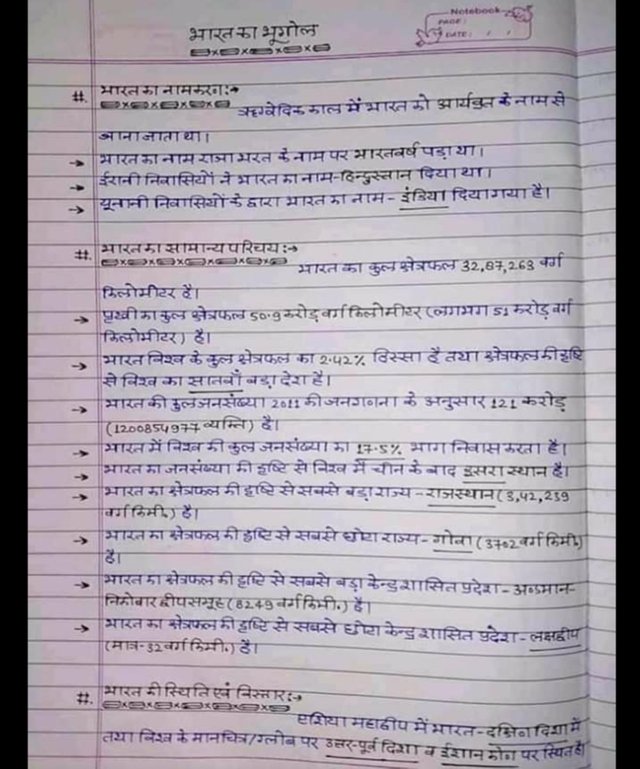 Notebook
PAGE:
DATE: / /
भारत का भूगोल
#. भारत का नामकरण:→
ऋग्वेदिक काल में भारत को आर्यव्रत के नाम से
जाना जाता था।
→ भारत का नाम राजा भरत के नाम पर भारतवर्ष पड़ा था।
→ ईरानी निवासियों ने भारत का नाम-हिन्दुस्तान दिया था।
→ यूनानी निवासियों के द्वारा भारत का नाम- इंडिया दिया गया है।
#. भारत का सामान्य परिचय:→
भारत का कुल क्षेत्रफल 32,87,263 वर्ग
किलोमीटर है।
→ पृथ्वी का कुल क्षेत्रफल 50.9 करोड़ वर्ग किलोमीटर (लगभग 51 करोड़ वर्ग
किलोमीटर) है।
→ भारत विश्व के कुल क्षेत्रफल का 2.42% हिस्सा है तथा क्षेत्रफल की दृष्टि
से विश्व का सातवाँ बड़ा देश है।
→ भारत की कुल जनसंख्या 2011 की जनगणना के अनुसार 121 करोड़
(1200854977 व्यक्ति) है।
→ भारत में विश्व की कुल जनसंख्या का 17.5% भाग निवास करता है।
→ भारत का जनसंख्या की दृष्टि से विश्व में चीन के बाद दूसरा स्थान है।
→ भारत का क्षेत्रफल की दृष्टि से सबसे बड़ा राज्य - राजस्थान (3,42,239
वर्ग किमी.) है।
→ भारत का क्षेत्रफल की दृष्टि से सबसे छोटा राज्य - गोवा (3702 वर्ग किमी.)
है।
→ भारत का क्षेत्रफल की दृष्टि से सबसे बड़ा केन्द्र शासित प्रदेश - अण्डमान-
निकोबार द्वीप समूह (8249 वर्ग किमी.) है।
→ भारत का क्षेत्रफल की दृष्टि से सबसे छोटा केन्द्र शासित प्रदेश - लक्षद्वीप
(मात्र-32 वर्ग किमी.) है।
#. भारत की स्थिति एवं विस्तार:→
एशिया महाद्वीप में भारत - दक्षिण दिशा में
तथा विश्व के मानचित्र/ग्लोब पर उत्तर-पूर्व दिशा व ईशान कोण पर स्थित है।